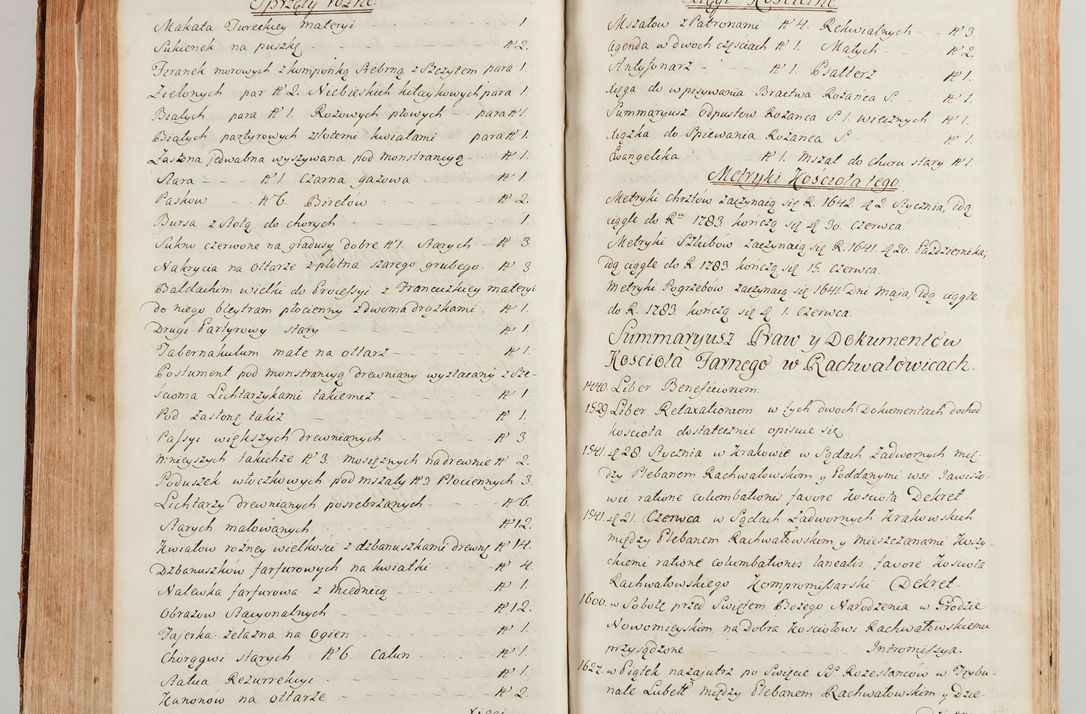 Sprzęty rożne
Makata Tureckiey materyi 1.
Sukienek na puszkę N° 2.
Firanek morowych z kompanką srebrną z Szczytem para 1.
Zielonych par N° 2. Niebieskich kitaykowych para 1.
Białych para N° 1. Rożowych płowych para N° 1.
Białych partyrowych złotemi kwiatami para N° 1.
Zasłona jedwabna wyszywana pod monstrancyą N° 1.
Stara N° 1. Czarna gazowa N° 1.
Paskow N° 6. Biretow N° 2.
Bursa z Stołą do chorych 1.
Sukno czerwone na gradusy dobre N° 1. Starych N° 3
Nakrycia na ołtarze z płotna szarego grubego N° 3
Baldachim wielki do Processyi z Francuzkiey materyi
do niego bleytram płocienny z dwoma drążkami N° 1.
Drugi Partyrowy stary N° 1.
Tabernakulum małe na ołtarz N° 1.
Postument pod monstrancyą drewniany wyzłacany z Sze-
ścioma Lichtarzykami takiemiż N° 1
Pod Zasłonę takiż N° 1.
Passyi większych drewnianych N° 3
mnieyszych takichże N° 3. mosiężnych na drewnie N° 2.
Poduszek włoczkowych pod mszały N° 2 Płociennych 3.
Lichtarzy drewnianych posrebrzanych N° 6.
Starych malowanych N° 12.
Kwiatow rożney wielkości z dzbanuszkami drewnę N° 14.
Dzbanuszkow farfurowych na kwiatki N° 4
Nalewka farfurowa z miednicą N° 1.
Obrazow Stacyonalnych N° 12.
Fajerka żelazna na ogien N° 1.
Chorągwi starych N° 6. Całun N° 1.
Statua Rezurrekcyi N° 1.
Kanonow na ołtarze N° 2.
Xięgi
Xięgi Kościelne
Mszałow z Patronami N° 4. Rekwialnych N° 3.
Agenda w dwoch częściach N° 1. Małych N° 2.
Antyfonarz N° 1. Psałterz N° 1.
Xięga do wpisywania Bractwa Rożańca S. N° 1.
Summaryusz Odpustow Rożańca S. 1. wiecznych N° 1.
Xiążka do Spiewania Rożanca S. N° 1.
Ewangelika N° 1. Mszał do churu stary N° 1
Metryki Kościoła tego.
Metryki Chrztow zaczynaią się R. 1642 d 2 Stycznia, idą
ciągle do R. 1783 kończą się d 30. Czerwca
Metryki Szlubow zaczynaią się R. 1641. d 20. Pazdziernika,
idą ciągle do R. 1783 kończą się 15. Czerwca.
Metryki Pogrzebow zaczynaią się 1641 Dni Maja, idą ciągle
do R. 1783 kończą się d 1. Czerwca.
Summaryusz Praw y Dokumentow
Kościoła Farnego w Rachwałowicach.
1440. Liber Beneficiorum.
1529 Liber Retaxationum w tych dwoch Dokumentach dochod
kościoła dostatecznie opisuie się
1541 d 28 Stycznia w Krakowie w Sądach Zadwornych mię-
dzy Plebanem Rachwałowskim y Poddanymi wsi Jawiszo-
wic ratione columbationis favore Kościoła Dekret.
1541. d 21. Czerwca w Sądach Zadwornych Krakowskich
między Plebanem Rachwałowskim y mieszczanami Koszy-
ckiemi ratione columbationis lanealis favore Kościoła
Rachwałowskiego Kompromissarski Dekret.
1600. w Sobotę przed Swiętem Bożego Narodzenia w Grodzie
Nowomieyskim na dobra Kościołowi Rachwałowskiemu
przysądzone Intromissya.
1627. w Piątek nazajutrz po Swięcie SS. Rozesłańcow w Trybu-
nale Lubelt między Plebanem Rachwałowskim y Dzie-